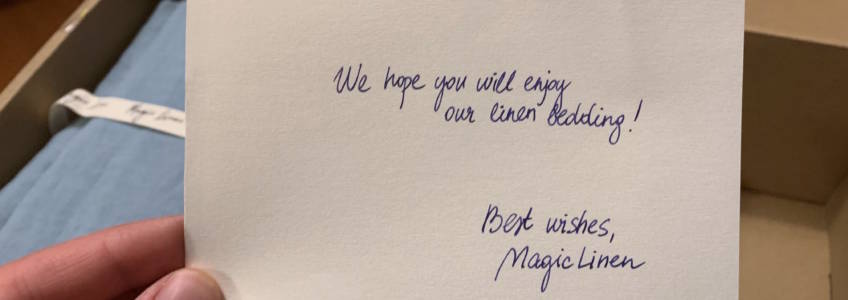 We hope you will enjoy
our linen bedding!
Best wishes,
MagicLinen